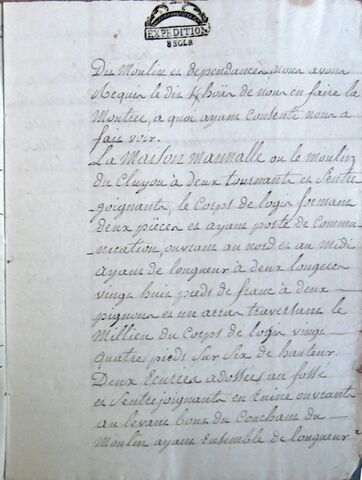 EXPEDITION
8 SOLS
Du Moulin et dependances nous avons
Requis le dit Boän de nous en faire la
Montrée, a quoi ayant consenti nous a
fait voir.
La Maison Mannalle ou le moulin
du Cluyou à deux tournants et s'entre
joignants, le Corps de logis formant
deux pièces et ayant porte de Commu
nication, ouvrant au nord et au midi
ayant de longueur à deux longeres
vingt huit pieds de franc à deux
pignons et un atras traversant le
Millieu du Corps de logis vingt
quatre pieds sur six de hauteur.
Deux Ecuries adossées au fossé
et s'entrejoignants en ruine ouvrants
au levant bout du Couchant du
Moulin ayant Ensemble de longueur